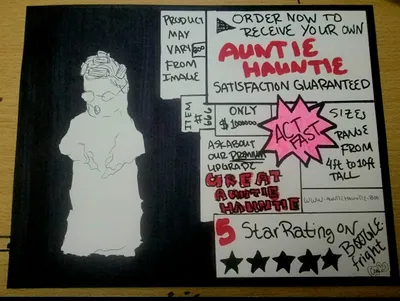 PRODUCT
MAY
VARY
FROM
IMAGE
ORDER NOW TO
RECEIVE YOUR OWN
AUNTIE
HAUNTIE
SATISFACTION GUARANTEED
ITEM
#
666
ONLY
ACT
FAST
SIZES
RANGE
FROM
4ft to 10ft
TALL
ASK ABOUT
OUR PREMIUM
UPGRADE
GREAT
AUNTIE
HAUNTIE
5 Star Rating ON